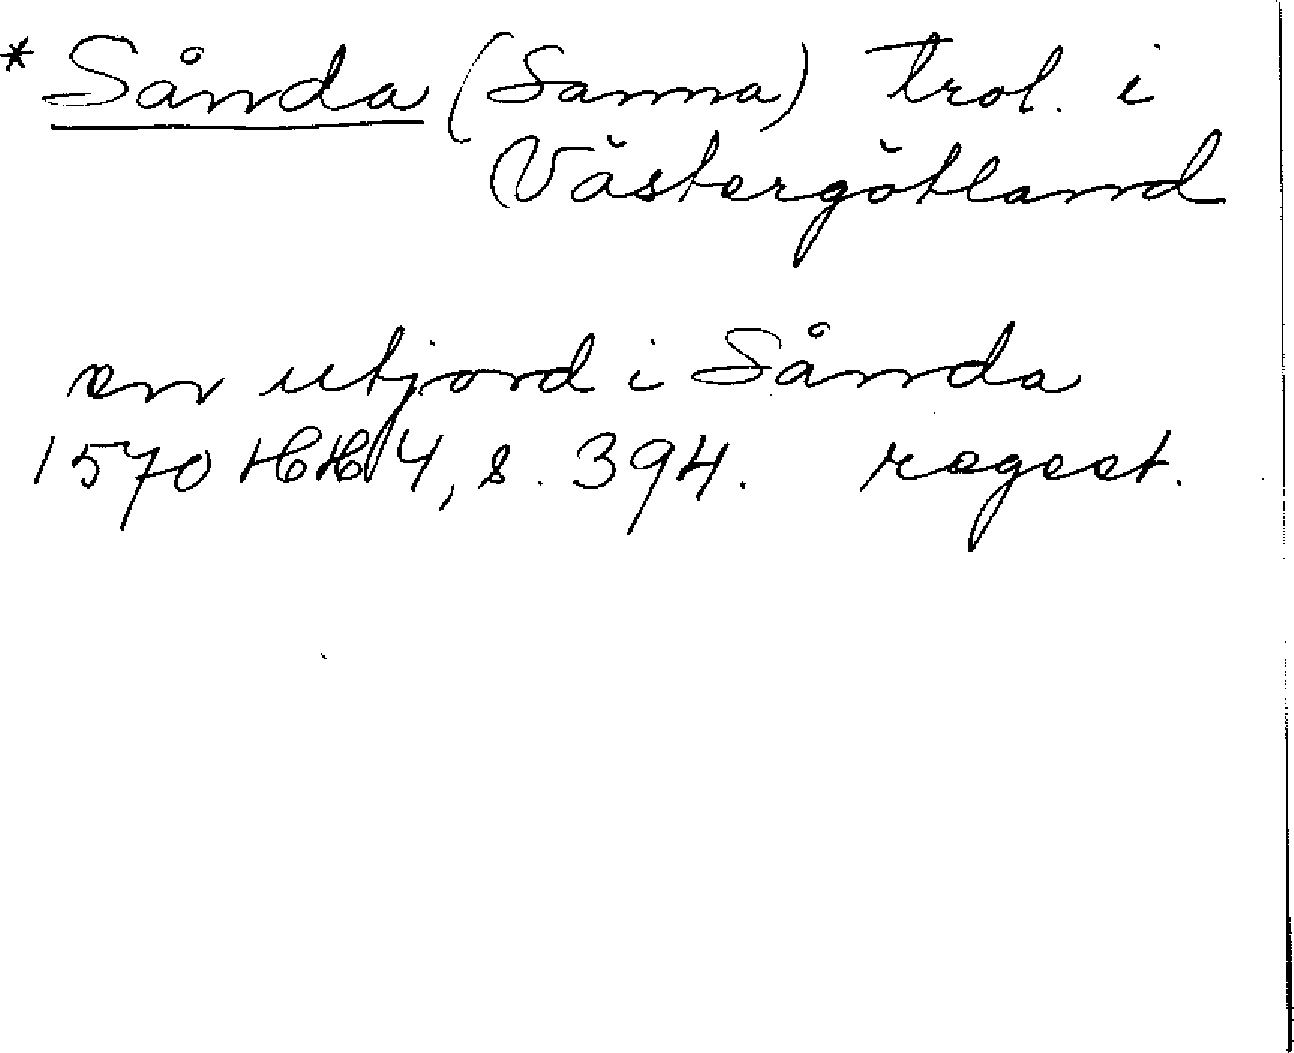 * Sånda (Sanna) trol. i
Västergötland
en utjord i Sånda
1570 HH 4, s. 394. regest.